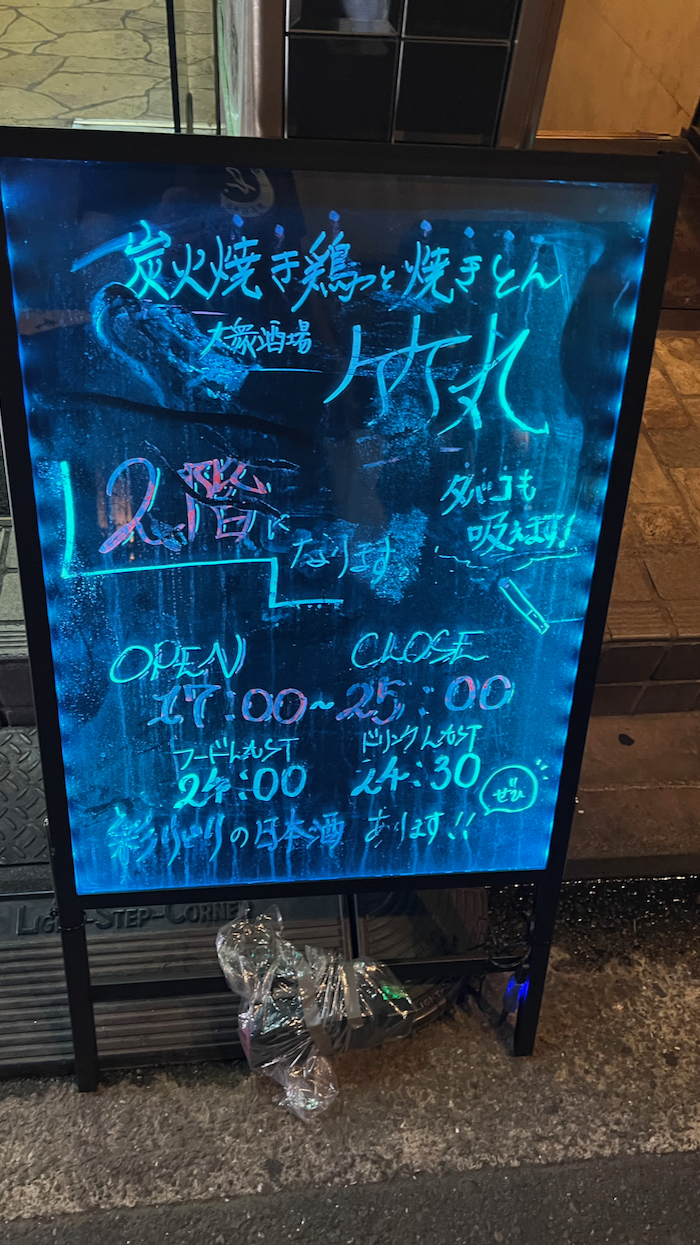 炭火焼き鶏っと焼きとん
大衆酒場 竹丸
2階に
なります
タバコも
吸えます!
OPEN CLOSE
17:00~25:00
フードL.O/ST ドリンクL.O/ST
24:00 24:30
ぜひ
彩りどりの日本酒 あります!!
LIGHT-STEP-CORNER